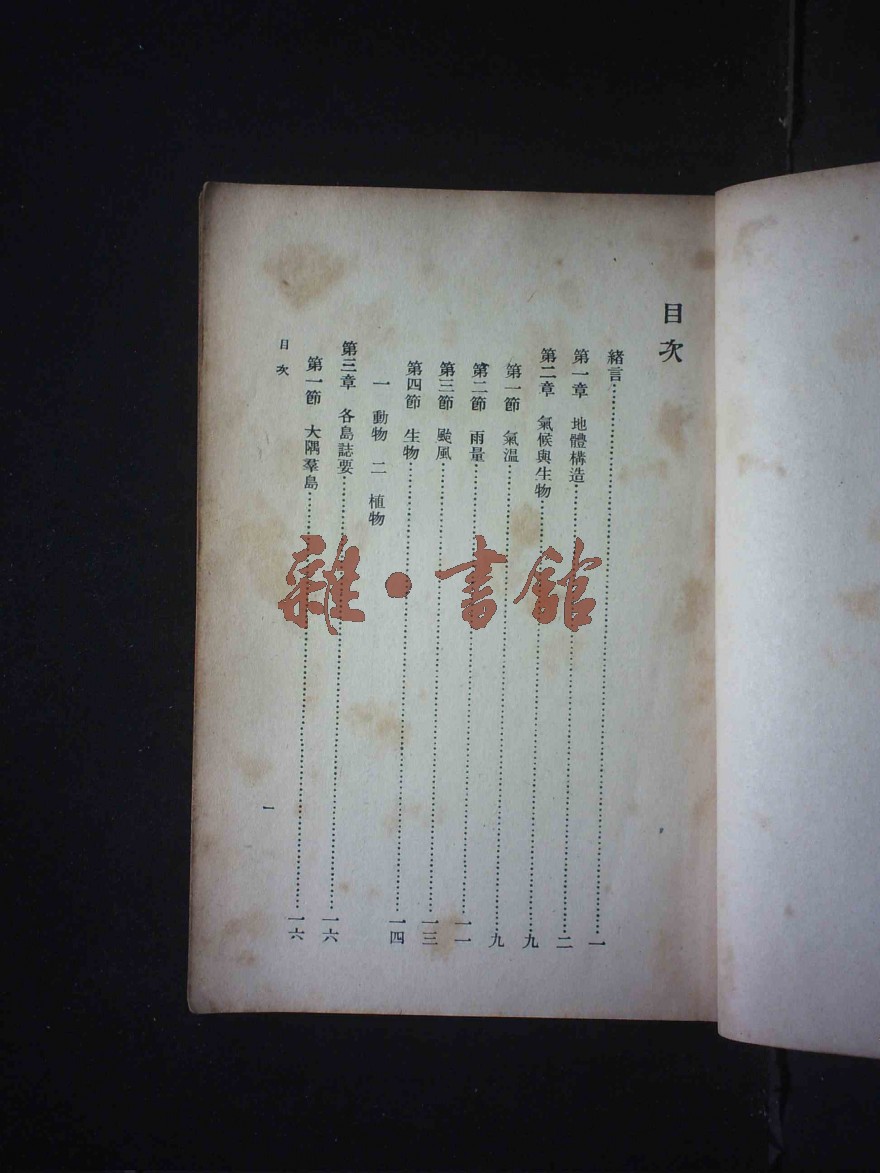 目次
緒言……一
第一章 地體構造……二
第二章 氣候與生物……九
第一節 氣温……九
第二節 雨量……一一
第三節 颱風……一三
第四節 生物……一四
一 動物 二 植物
第三章 各島誌要……一六
第一節 大隅羣島……一六
目次
一
雜·書館